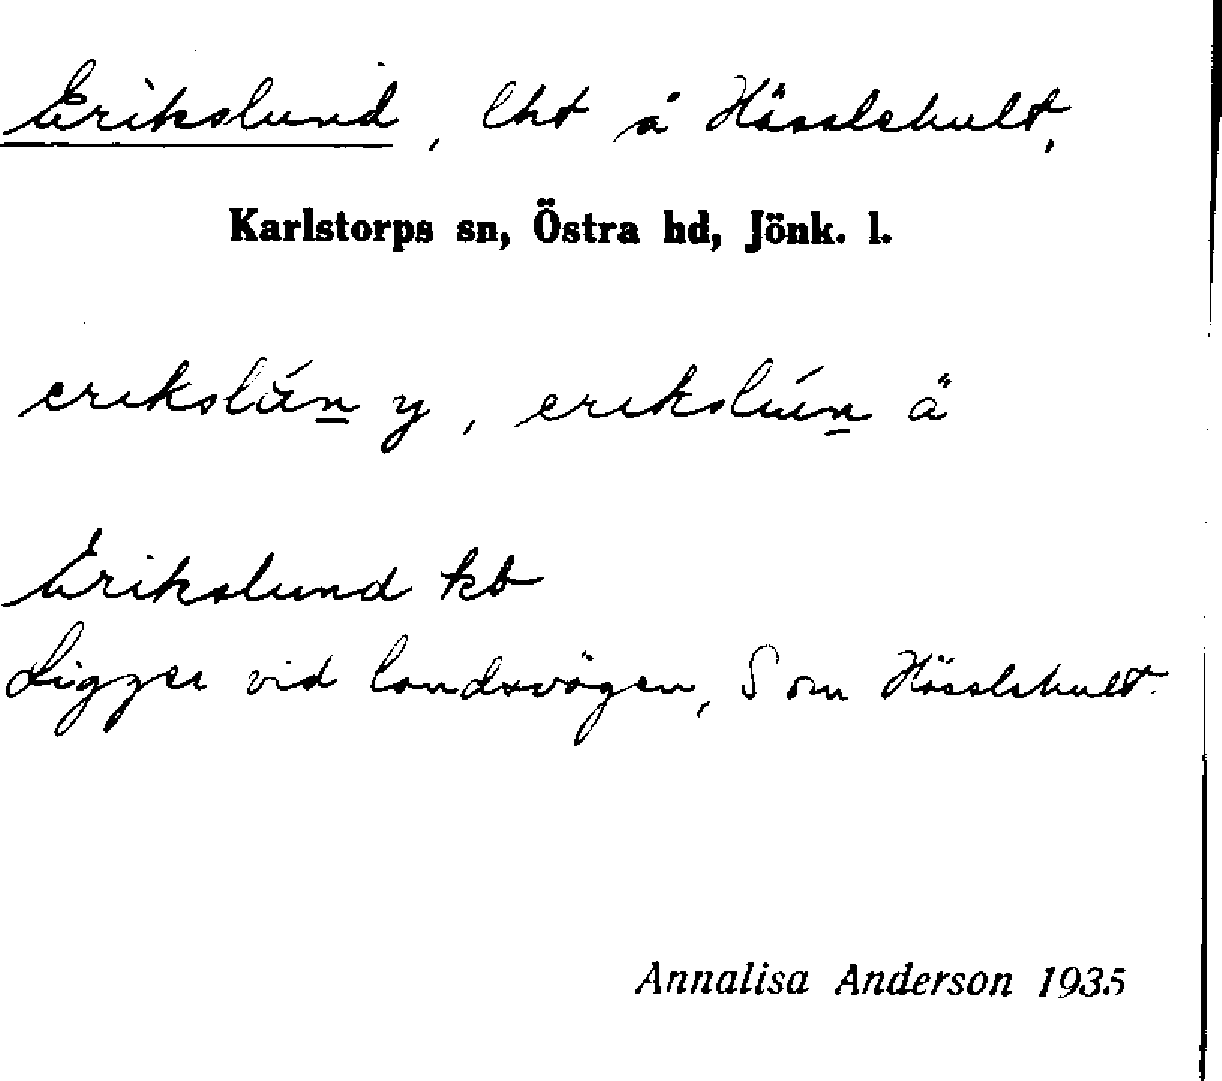 Erikslund, lht å Hässlehult,
Karlstorps sn, Östra hd, Jönk. l.
erikslún y, erikslún å
Erikslund kb
Ligger vid landsvägen, S om Hässlehult.
Annalisa Anderson 1935